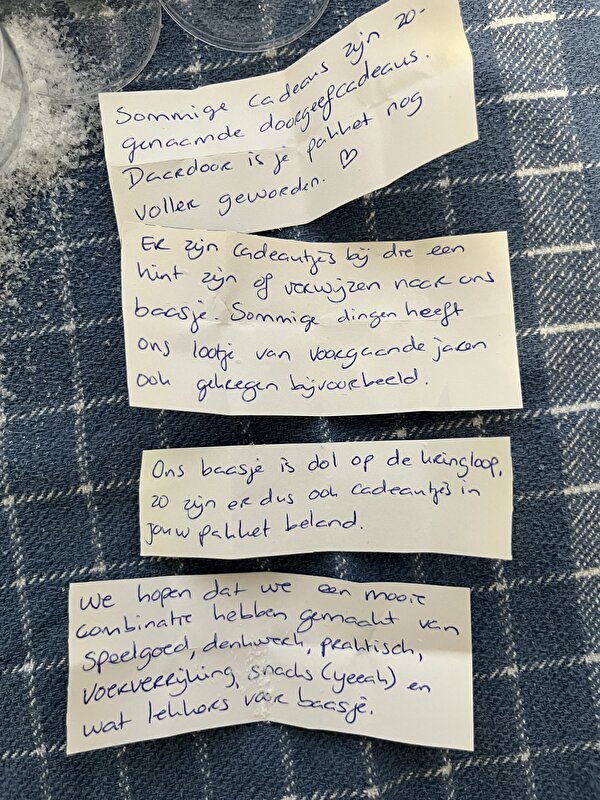 Sommige cadeaus zijn zo-
genaamde doorgeefcadeaus.
Daardoor is je pakket nog
voller geworden. ♡
Er zijn cadeautjes bij die een
hint zijn of verwijzen naar ons
baasje. Sommige dingen heeft
ons lootje van voorgaande jaren
ook gekregen bijvoorbeeld.
Ons baasje is dol op de kringloop,
zo zijn er dus ook cadeautjes in
jouw pakket beland.
We hopen dat we een mooie
combinatie hebben gemaakt van
speelgoed, denkwerk, praktisch,
voerverrijking, snacks (yeeah) en
wat lekkers voor baasje.